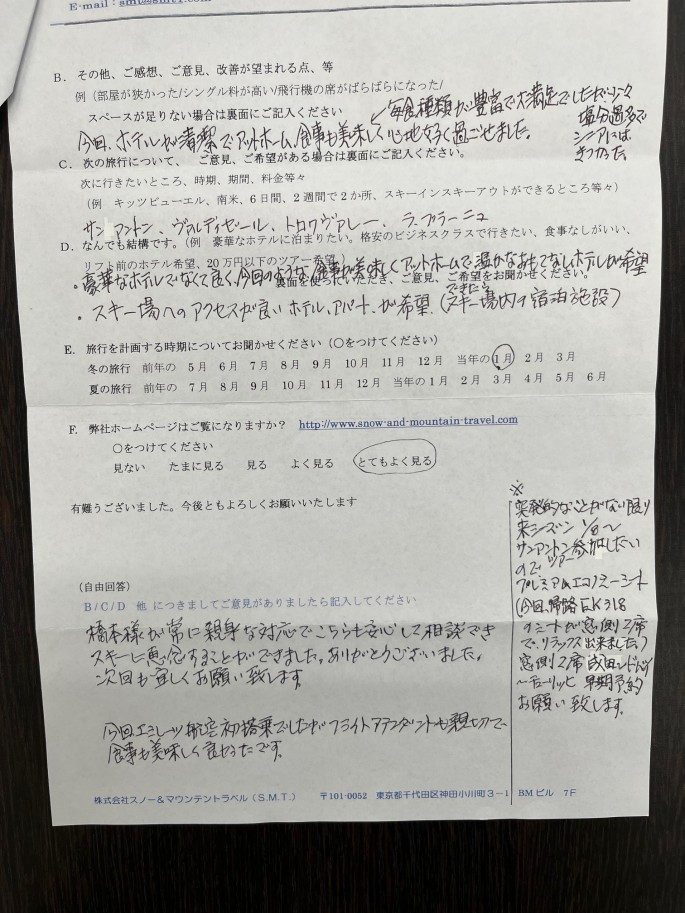 E-mail：smt@smt1.com
B. その他、ご感想、ご意見、改善が望まれる点、等
例（部屋が狭かった/シングル料が高い/飛行機の席がばらばらになった/
スペースが足りない場合は裏面にご記入ください
毎食種類が豊富で大満足でしたが
塩分過多で
シニアには
きつかった
今回、ホテルが清潔でアットホーム、食事も美味しく心地好く過ごせました。
C. 次の旅行について、 ご意見、ご希望がある場合は裏面にご記入ください。
次に行きたいところ、時期、期間、料金等々
（例 キッツビューエル、南米、6日間、2週間で2か所、スキーインスキーアウトができるところ等々）
サンアントン、ヴァルディゼール、トロワヴァレー、ラ・プラーニュ
D. なんでも結構です。(例 豪華なホテルに泊まりたい。格安のビジネスクラスで行きたい、食事なしがいい、
リフト前のホテル希望、20万円以下のツアー希望 ）
裏面を使っていただき、ご意見、ご希望をお聞かせください。
・豪華なホテルでなくて良く、今回のような食事が美味しくアットホームで温かなおもてなしホテルが希望
・スキー場へのアクセスが良いホテル、アパート、が希望、できたら（スキー場内の宿泊施設）
E. 旅行を計画する時期についてお聞かせください（○をつけてください）
冬の旅行 前年の 5月 6月 7月 8月 9月 10月 11月 12月 当年の1月 2月 3月
夏の旅行 前年の 7月 8月 9月 10月 11月 12月 当年の1月 2月 3月 4月 5月 6月
F. 弊社ホームページはご覧になりますか？ http://www.snow-and-mountain-travel.com
○をつけてください
見ない たまに見る 見る よく見る とてもよく見る
有難うございました。今後ともよろしくお願いいたします
（自由回答）
B/C/D 他 につきましてご意見がありましたら記入してください
橋本様が常に親身な対応でこちらも安心して相談でき
スキーに専念することができました。ありがとうございました。
次回も宜しくお願い致します
今回エミレーツ航空初搭乗でしたがフライトアテンダントも親切で
食事も美味しく良かったです。
※
突発的なことがない限り
来シーズン 1/8〜
サンアントン参加したい
ので、ツアー
プレミアムエコノミーシート
(今回、帰路EK318
のシートが窓側2席
で、リラックス出来ました。)
窓側2席 成田−ドバイ
〜チューリッヒ 早期予約
お願い致します。
株式会社スノー＆マウンテントラベル（S.M.T.） 〒101-0052 東京都千代田区神田小川町3−1 BMビル 7F